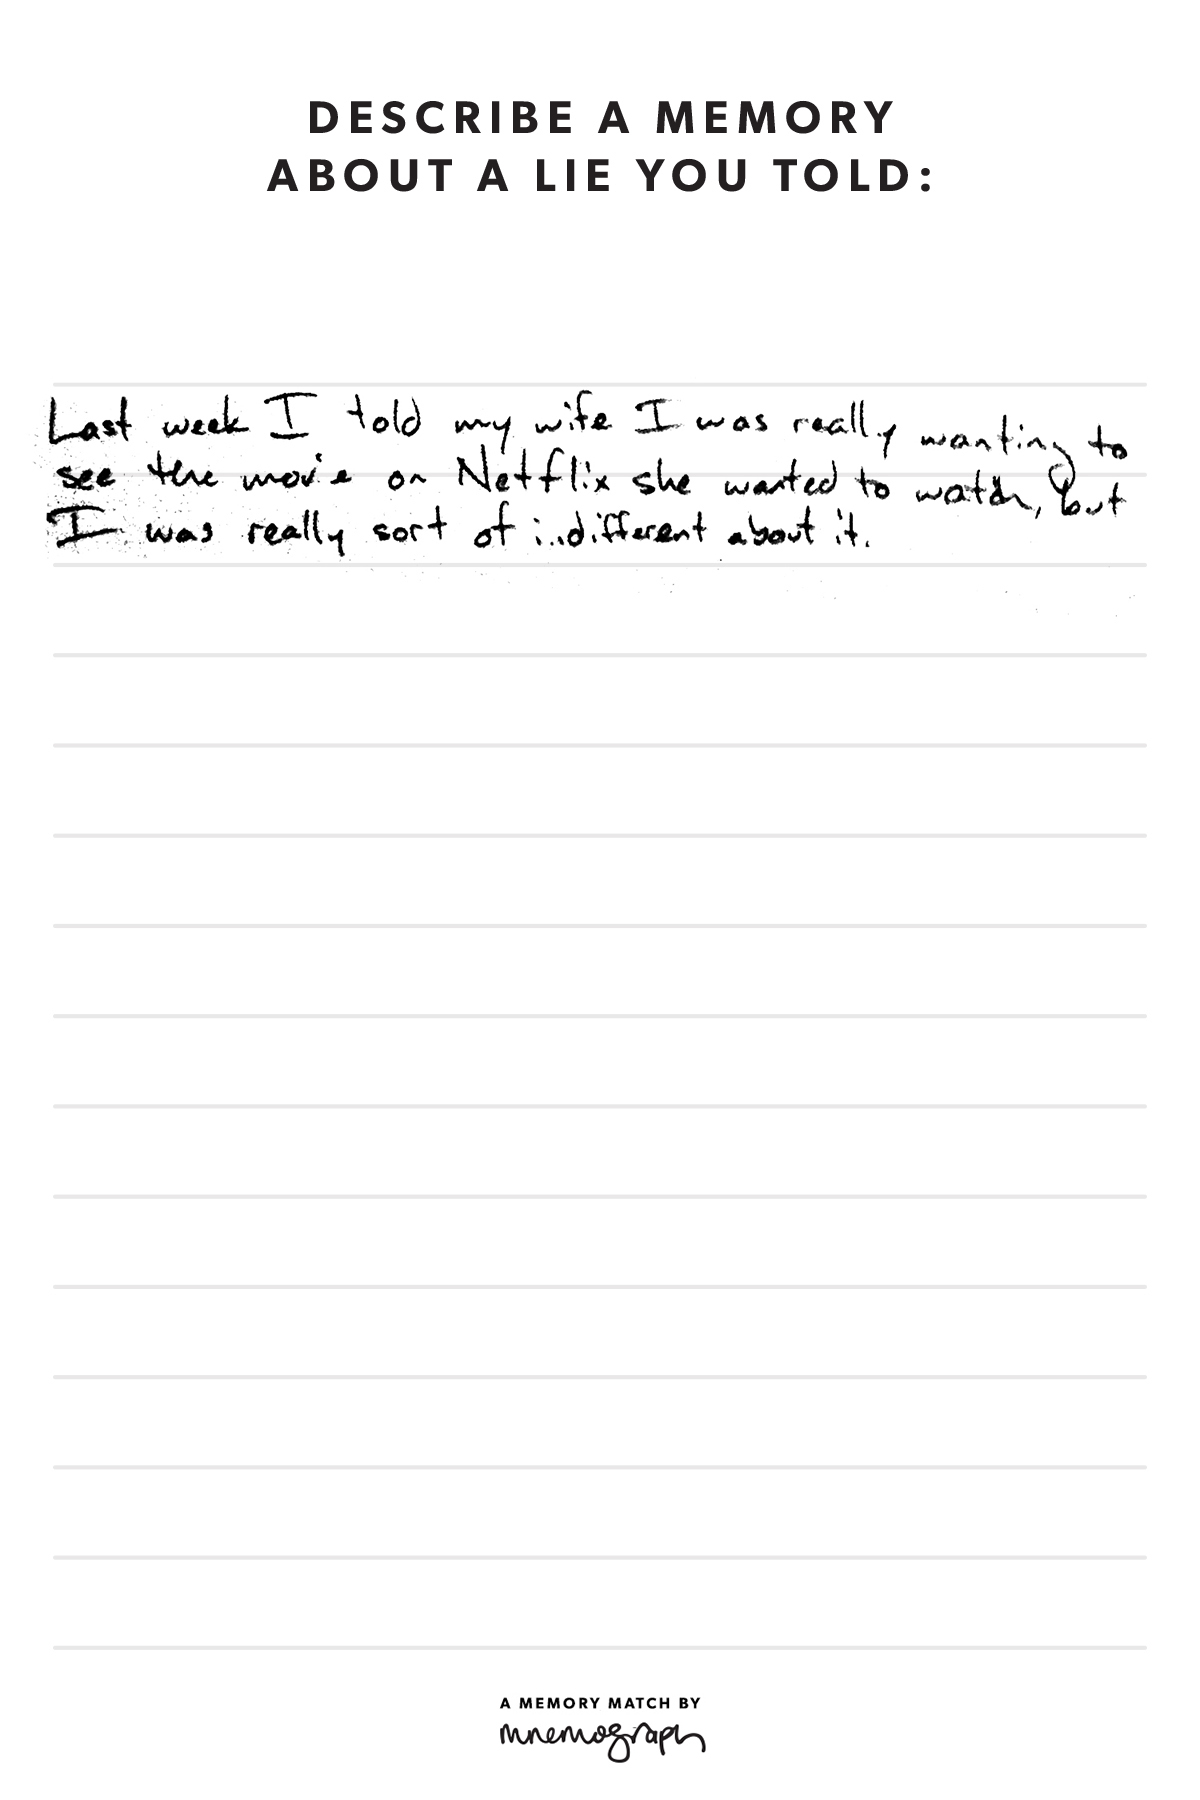 DESCRIBE A MEMORY
ABOUT A LIE YOU TOLD:
Last week I told my wife I was really wanting to
see the movie on Netflix she wanted to watch, but
I was really sort of indifferent about it.
A MEMORY MATCH BY
mnemograph